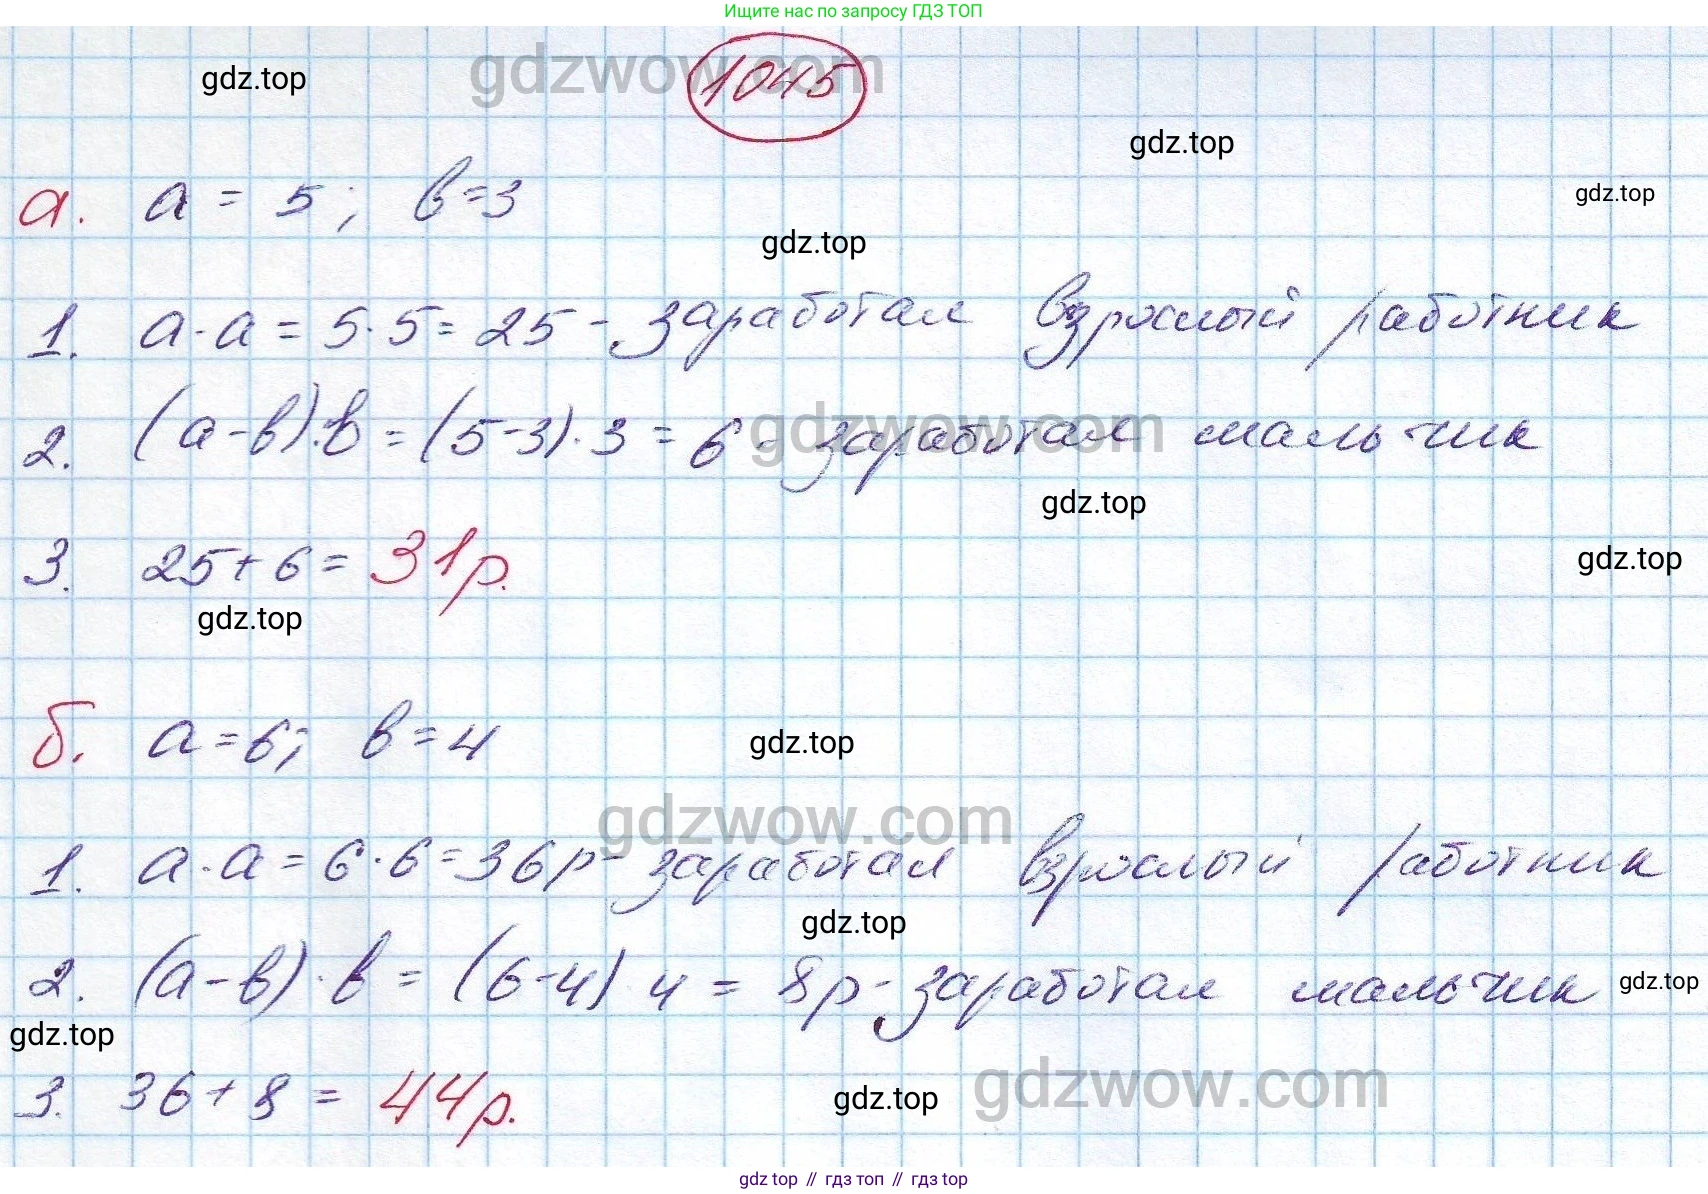 Ищите нас по запросу ГДЗ ТОП
gdzwow.com
1045
gdz.top
gdz.top
а. a = 5; в=3
gdz.top
gdz.top
1. a·a = 5·5 = 25 - заработал взрослый работник
2. (a-в)·в = (5-3)·3 = 6 - заработал мальчик
gdzwow.com
gdz.top
3. 25+6 = 31р.
gdz.top
gdz.top
б. a=6; в=4
gdz.top
gdzwow.com
1. a·a = 6·6 = 36р - заработал взрослый работник
gdz.top
2. (a-в)·в = (6-4) 4 = 8р - заработал мальчик
gdz.top
gdz.top
3. 36+8 = 44р.
gdz.top
gdzwow.com
gdz top // гдз топ // гдз top